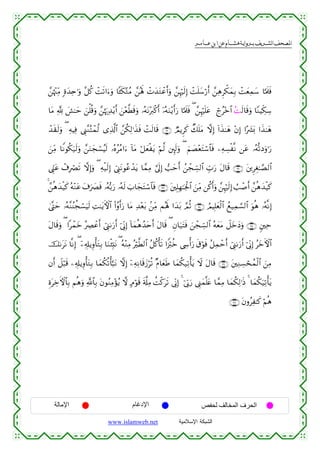 المصحف الشريف برواية شعبة عن عاصم
فَلَمَّا سَمِعَتْ بِمَكْرِهِنَّ أَرْسَلَتْ إِلَيْهِنَّ وَأَعْتَدَتْ لَهُنَّ مُتَّكَـًٔا وَءَاتَتْ كُلَّ وَٰحِدَةٍ مِّنْهُنَّ
سِكِّينًا وَقَالَتُ ٱخْرُجْ عَلَيْهِنَّ ۖ فَلَمَّا رَأَيْنَهُۥٓ أَكْبَرْنَهُۥ وَقَطَّعْنَ أَيْدِيَهُنَّ وَقُلْنَ حَٰشَ لِلَّهِ مَا
هَٰذَا بَشَرًا إِنْ هَٰذَآ إِلَّا مَلَكٌ كَرِيمٌ ﴿٣١﴾ قَالَتْ فَذَٰلِكُنَّ ٱلَّذِى لُمْتُنَّنِى فِيهِ ۖ وَلَقَدْ
رَٰوَدتُّهُۥ عَن نَّفْسِهِۦ فَٱسْتَعْصَمَ ۖ وَلَئِن لَّمْ يَفْعَلْ مَآ ءَامُرُهُۥ لَيُسْجَنَنَّ وَلَيَكُونًا مِّنَ
ٱلصَّٰغِرِينَ ﴿٣٢﴾ قَالَ رَبِّ ٱلسِّجْنُ أَحَبُّ إِلَىَّ مِمَّا يَدْعُونَنِىٓ إِلَيْهِ ۖ وَإِلَّا تَصْرِفْ عَنِّى
كَيْدَهُنَّ أَصْبُ إِلَيْهِنَّ وَأَكُن مِّنَ ٱلْجَٰهِلِينَ ﴿٣٣﴾ فَٱسْتَجَابَ لَهُۥ رَبُّهُۥ فَصَرَفَ عَنْهُ كَيْدَهُنَّ ۚ
إِنَّهُۥ هُوَ ٱلسَّمِيعُ ٱلْعَلِيمُ ﴿٣٤﴾ ثُمَّ بَدَا لَهُم مِّنۢ بَعْدِ مَا رَأَوُا۟ ٱلْـَٔايَٰتِ لَيَسْجُنُنَّهُۥ حَتَّىٰ
حِينٍ ﴿٣٥﴾ وَدَخَلَ مَعَهُ ٱلسِّجْنَ فَتَيَانِ ۖ قَالَ أَحَدُهُمَآ إِنِّىٓ أَرَىٰنِىٓ أَعْصِرُ خَمْرًا ۖ وَقَالَ
ٱلْـَٔاخَرُ إِنِّىٓ أَرَىٰنِىٓ أَحْمِلُ فَوْقَ رَأْسِى خُبْزًا تَأْكُلُ ٱلطَّيْرُ مِنْهُ ۖ نَبِّئْنَا بِتَأْوِيلِهِۦٓ ۖ إِنَّا نَرَىٰكَ
مِنَ ٱلْمُحْسِنِينَ ﴿٣٦﴾ قَالَ لَا يَأْتِيكُمَا طَعَامٌ تُرْزَقَانِهِۦٓ إِلَّا نَبَّأْتُكُمَا بِتَأْوِيلِهِۦ قَبْلَ أَن
يَأْتِيَكُمَا ۚ ذَٰلِكُمَا مِمَّا عَلَّمَنِى رَبِّىٓ ۚ إِنِّى تَرَكْتُ مِلَّةَ قَوْمٍ لَّا يُؤْمِنُونَ بِٱللَّهِ وَهُم بِٱلْـَٔاخِرَةِ
هُمْ كَٰفِرُونَ ﴿٣٧﴾
الحرف المخالف لحفص الإدغام الإمالة
الشبكة الإسلامية www.islamweb.net